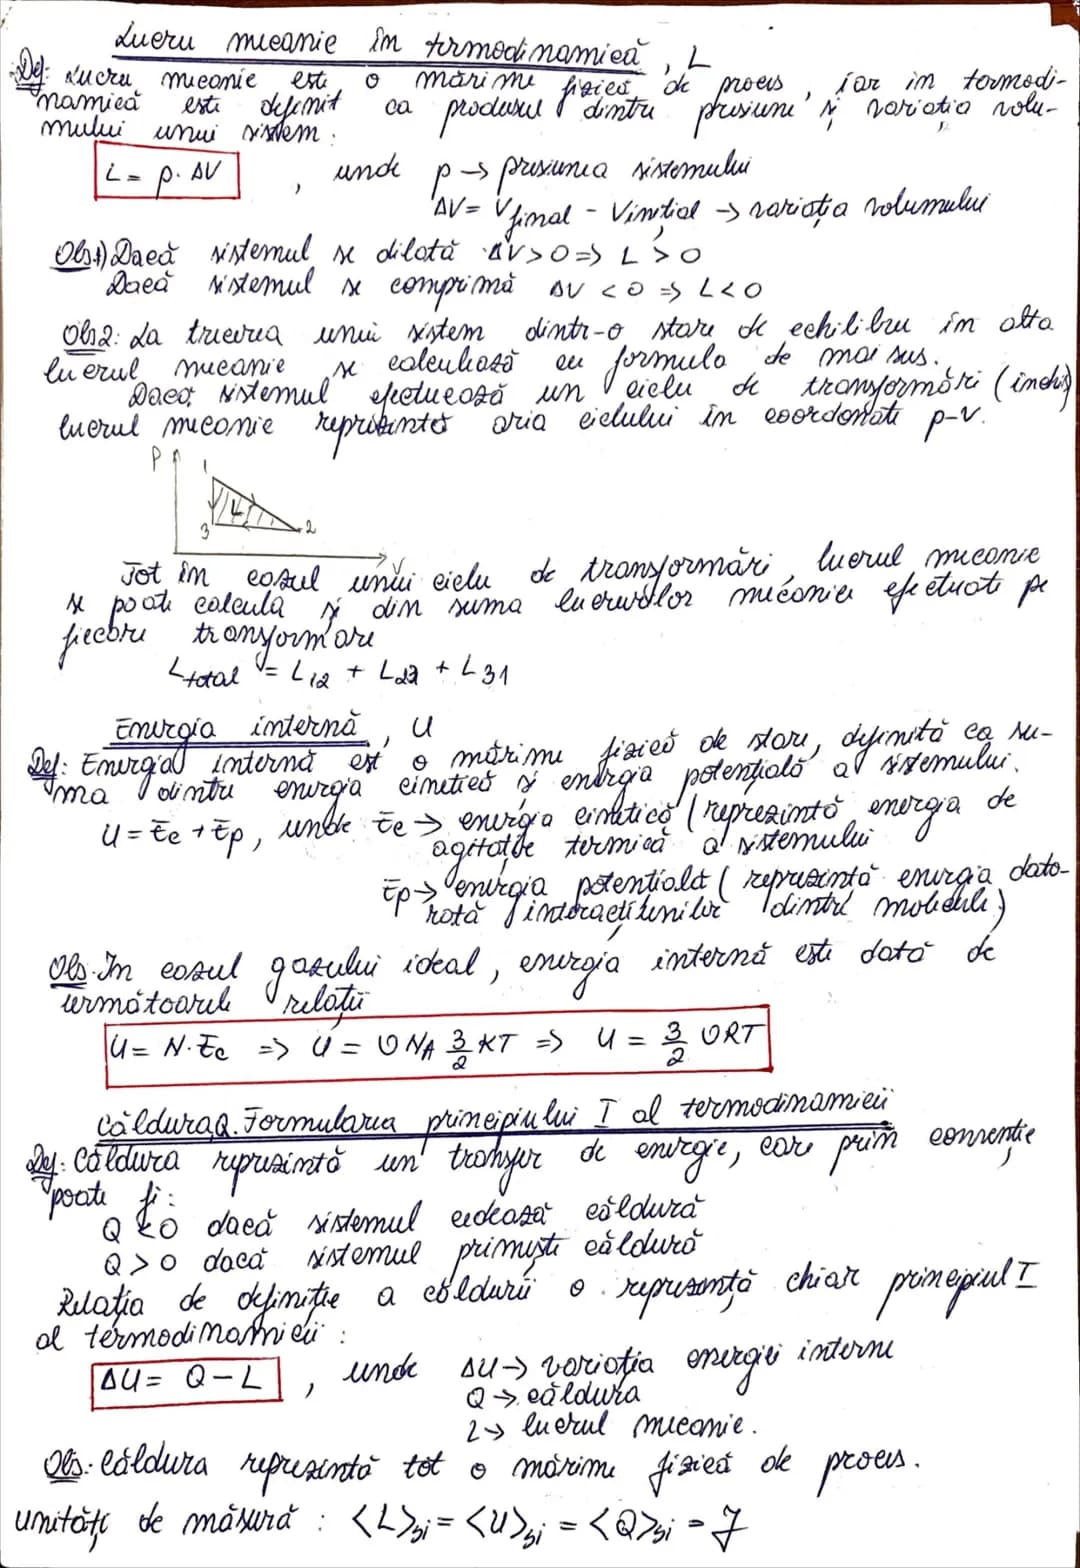 Lucru mecanic în termodinamică, L
Def: Lucru mecanic este o mărime fizică de proces, iar în termodi-
namică este definit ca produsul dintre presiune și variația volu-
mului unui sistem:
L = p. ΔV , unde p → presiunea sistemului
ΔV = Vfinal - Vinițial → variația volumului
Obs1) Dacă sistemul se dilată ΔV>0 => L>0
Dacă sistemul se comprimă ΔV<0 => L<0
Obs2: La trecerea unui sistem dintr-o stare de echilibru în alta
lucrul mecanic se calculează cu formula de mai sus.
Dacă sistemul efectuează un ciclu de transformări (închis)
lucrul mecanic reprezintă aria ciclului în coordonate p-V.
P
1
L
3 2
V
Tot în cazul unui ciclu de transformări, lucrul mecanic
se poate calcula și din suma lucrurilor mecanice efectuate pe
fiecare transformare
Ltotal = L12 + L23 + L31
Energia internă, U
Def: Energia internă este o mărime fizică de stare, definită ca su-
ma dintre energia cinetică și energia potențială a sistemului.
U = Ec + Ep, unde Ec → energia cinetică (reprezintă energia de
agitație termică a sistemului
Ep → energia potențială (reprezintă energia dato-
rată interacțiunilor dintre molecule)
Obs. În cazul gazului ideal, energia internă este dată de
următoarele relații
U = N·Ec => U = υNA 3/2 KT => U = 3/2 υRT
Căldura,Q. Formularea principiului I al termodinamicii
Def: Căldura reprezintă un transfer de energie, care prin convenție
poate fi:
Q<0 dacă sistemul cedează căldură
Q>0 dacă sistemul primește căldură
Relația de definiție a căldurii o reprezintă chiar principiul I
al termodinamicii:
ΔU = Q-L , unde ΔU → variația energiei interne
Q → căldura
L → lucrul mecanic.
Obs: Căldura reprezintă tot o mărime fizică de proces.
unități de măsură : <L>si = <U>si = <Q>si = J